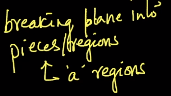 breaking plane into
pieces/regions
↳ "a" regions